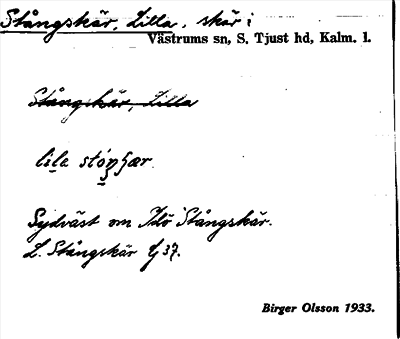 Stångskär, Lilla, skär i
Västrums sn, S. Tjust hd, Kalm. l.
Stångskär, Lilla
lila
Sydväst om Idö Stångskär.
L. Stångskär 37.
Birger Olsson 1933.